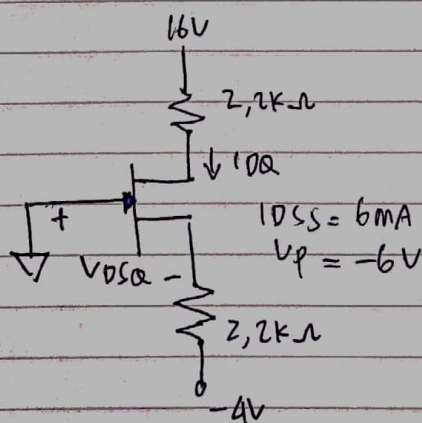 16V
2,2KΩ
↓ IDQ
+
IDSS = 6mA
VP = -6V
VDSQ -
2,2KΩ
-4V